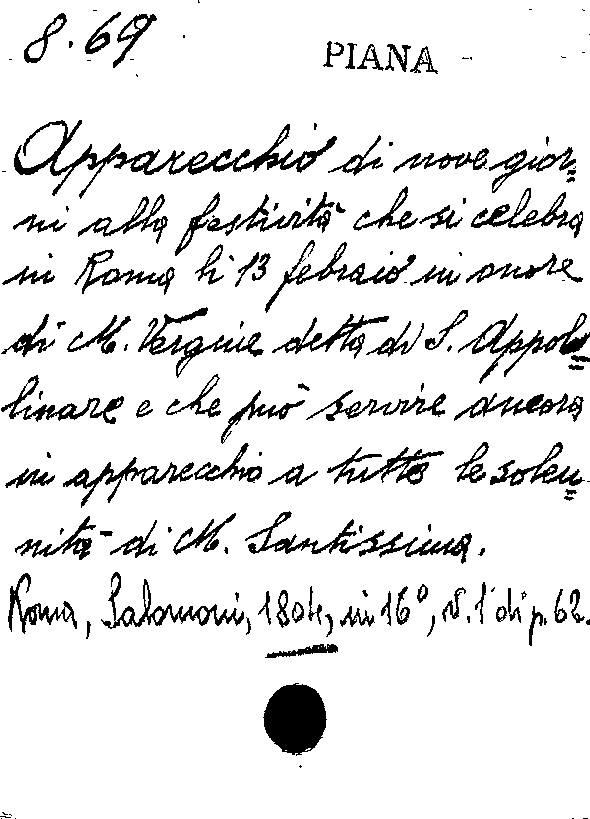 8.69
PIANA
Apparecchio di nove gior=
ni alla festività che si celebra
in Roma li 13 febraio in onore
di M. Vergine detta di S. Appol=
linare e che può servire ancora
in apparecchio a tutte le solen=
nità di M. Santissima.
Roma, Salomoni, 1804, in 16°, v. 1 di p. 62.